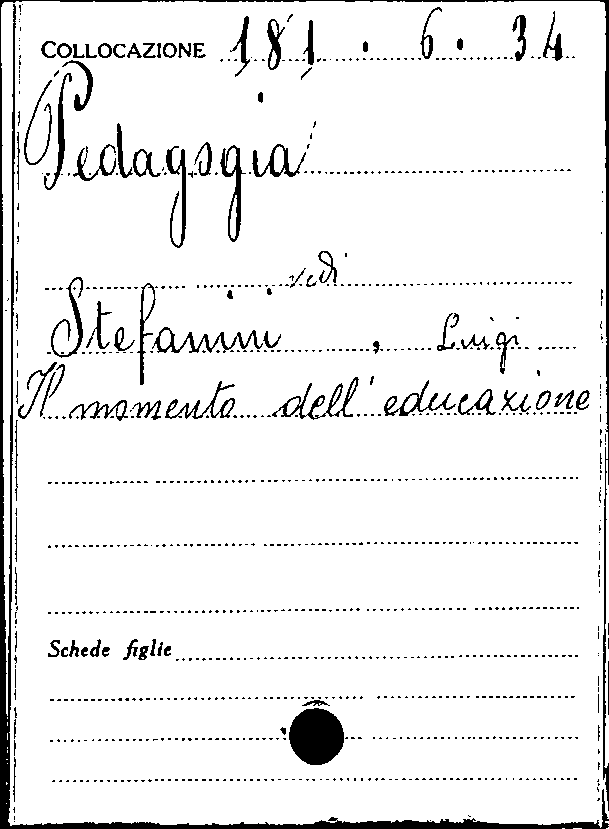 COLLOCAZIONE 181 . 6 . 34
Pedagogia
vedi
Stefanini, Luigi
Il momento dell'educazione
Schede figlie